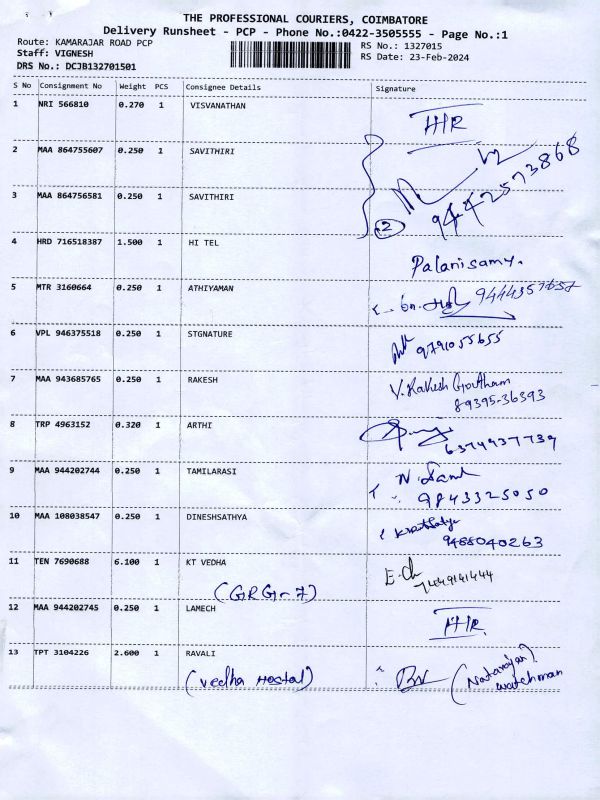 THE PROFESSIONAL COURIERS, COIMBATORE
Delivery Runsheet - PCP - Phone No.:0422-3505555 - Page No.:1
Route: KAMARAJAR ROAD PCP
RS No.: 1327015
Staff: VIGNESH
RS Date: 23-Feb-2024
DRS No.: DCJB132701501
S No Consignment No Weight PCS Consignee Details Signature
1 NRI 566810 0.270 1 VISVANATHAN
2 MAA 864755607 0.250 1 SAVITHIRI
9442573868
3 MAA 864756581 0.250 1 SAVITHIRI
2
4 HRD 716518387 1.500 1 HI TEL
Palanisamy.
5 MTR 3160664 0.250 1 ATHIYAMAN
6 VPL 946375518 0.250 1 STGNATURE
9791055655
7 MAA 943685765 0.250 1 RAKESH
V. Rakesh Goutham
89395-36393
8 TRP 4963152 0.320 1 ARTHI
6374937739
9 MAA 944202744 0.250 1 TAMILARASI
9843325050
10 MAA 108038547 0.250 1 DINESHSATHYA
9488040263
11 TEN 7690688 6.100 1 KT VEDHA
(GRG-7)
12 MAA 944202745 0.250 1 LAMECH
13 TPT 3104226 2.600 1 RAVALI
(Vedha Hostal)
(Natarajan)
watchman